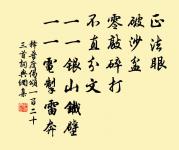 正法眼
破沙盆
零敲碎打
不直分文
一一銀山鐵壁
一一電掣雷奔
釋普度偈頌一百二十
三首詞典網集